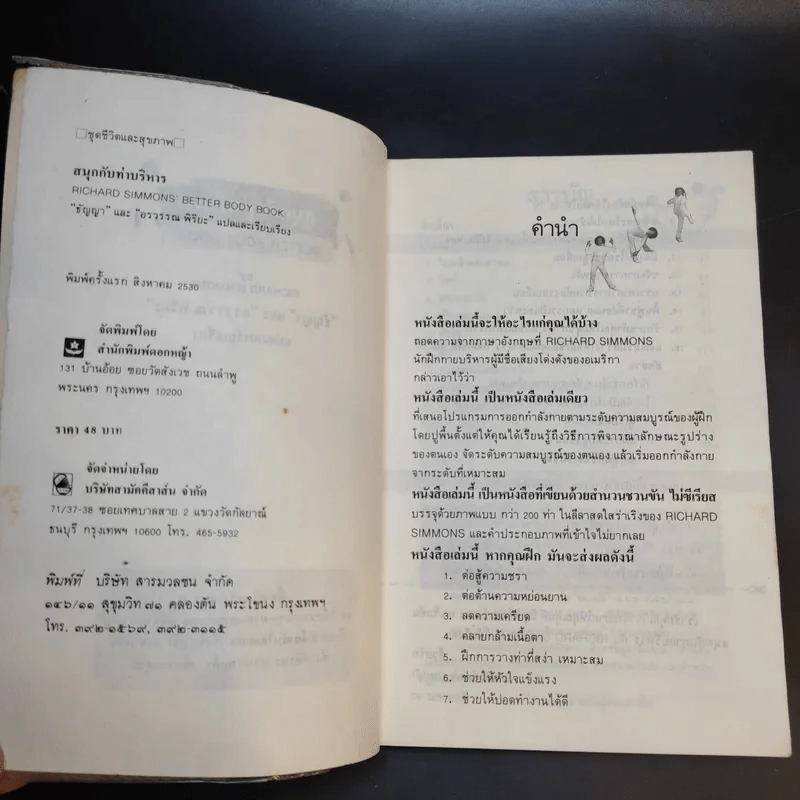 ชุดชีวิตและสุขภาพ
สนุกกับท่าบริหาร
RICHARD SIMMONS' BETTER BODY BOOK
"ธัญญา" และ "อรวรรณ พิริยะ" แปลและเรียบเรียง
พิมพ์ครั้งแรก สิงหาคม 2530
จัดพิมพ์โดย
สำนักพิมพ์ดอกหญ้า
131 บ้านอ้อย ซอยวัดสังเวช ถนนลำพู
พระนคร กรุงเทพฯ 10200
ราคา 48 บาท
จัดจำหน่ายโดย
บริษัทสามัคคีสาส์น จำกัด
71/37-38 ซอยเทศบาลสาย 2 แขวงวัดกัลยาณ์
ธนบุรี กรุงเทพฯ 10600 โทร. 465-5932
พิมพ์ที่ บริษัท สารมวลชน จำกัด
๑๔๖/๑๑ สุขุมวิท ๗๑ คลองตัน พระโขนง กรุงเทพฯ
โทร. ๓๙๒-๑๕๖๙, ๓๙๒-๓๑๑๕
คำนำ
หนังสือเล่มนี้จะให้อะไรแก่คุณได้บ้าง
ถอดความจากภาษาอังกฤษที่ RICHARD SIMMONS
นักฝึกกายบริหารผู้มีชื่อเสียงโด่งดังของอเมริกา
กล่าวเอาไว้ว่า
หนังสือเล่มนี้ เป็นหนังสือเล่มเดียว
ที่เสนอโปรแกรมการออกกำลังกายตามระดับความสมบูรณ์ของผู้ฝึก
โดยปูพื้นตั้งแต่ให้คุณได้เรียนรู้ถึงวิธีการพิจารณาลักษณะรูปร่าง
ของตนเอง จัดระดับความสมบูรณ์ของตนเอง แล้วเริ่มออกกำลังกาย
จากระดับที่เหมาะสม
หนังสือเล่มนี้ เป็นหนังสือที่เขียนด้วยสำนวนชวนขัน ไม่ซีเรียส
บรรจุด้วยภาพแบบ กว่า 200 ท่า ในลีลาสดใสร่าเริงของ RICHARD
SIMMONS และคำประกอบภาพที่เข้าใจไม่ยากเลย
หนังสือเล่มนี้ หากคุณฝึก มันจะส่งผลดังนี้
1. ต่อสู้ความชรา
2. ต่อต้านความหย่อนยาน
3. ลดความเครียด
4. คลายกล้ามเนื้อตา
5. ฝึกการวางท่าที่สง่า เหมาะสม
6. ช่วยให้หัวใจแข็งแรง
7. ช่วยให้ปอดทำงานได้ดี